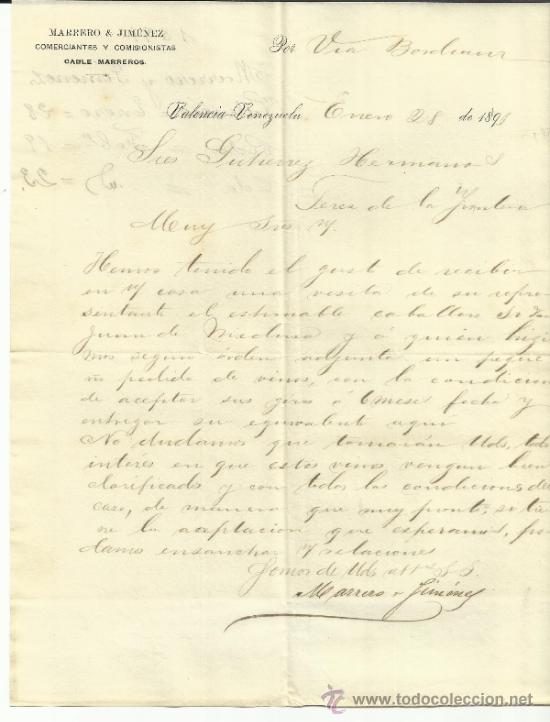 MARRERO & JIMÚNEZ
COMERCIANTES Y COMISIONISTAS
CABLE-MARREROS.
Por Via Bordeaux
Valencia-Venezuela Enero 28 de 189
Sres Gutierrez Hermanos
Jerez de la Frontera
Muy Sres
Hemos tenido el gusto de recibir
en casa una visita de su repre
sentante el estimable caballero Sr
Juan de y á quien higi
mos segun órden adjunta un peque
ño pedido de vinos, con la condicion
de aceptar sus giros a 6 meses fecha y
entregar su equivalente aqui
No dudamos que tomarán Uds. todo
interés en que estos vinos vengan bien
clarificados y con todas las condiciones del
caso, de manera que muy pronto, si tie
ne la aceptacion que esperamos, po
damos ensanchar relaciones
Somos de Uds S.S.
Marrero & Jiménez
todocoleccion
www.todocoleccion.net